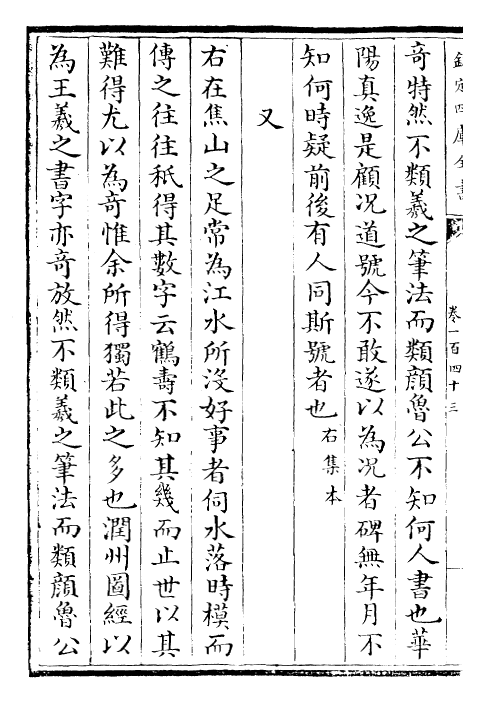 欽定四庫全書
卷一百四十三
奇特然不類羲之筆法而類顔魯公不知何人書也華
陽真逸是顧况道號今不敢遂以為况者碑無年月不
知何時疑前後有人同斯號者也右集本
又
右在焦山之足常為江水所没好事者伺水落時模而
傳之往往秖得其數字云鶴壽不知其幾而止世以其
難得尤以為奇惟余所得獨若此之多也潤州圖經以
為王羲之書字亦奇放然不類羲之筆法而類顔魯公